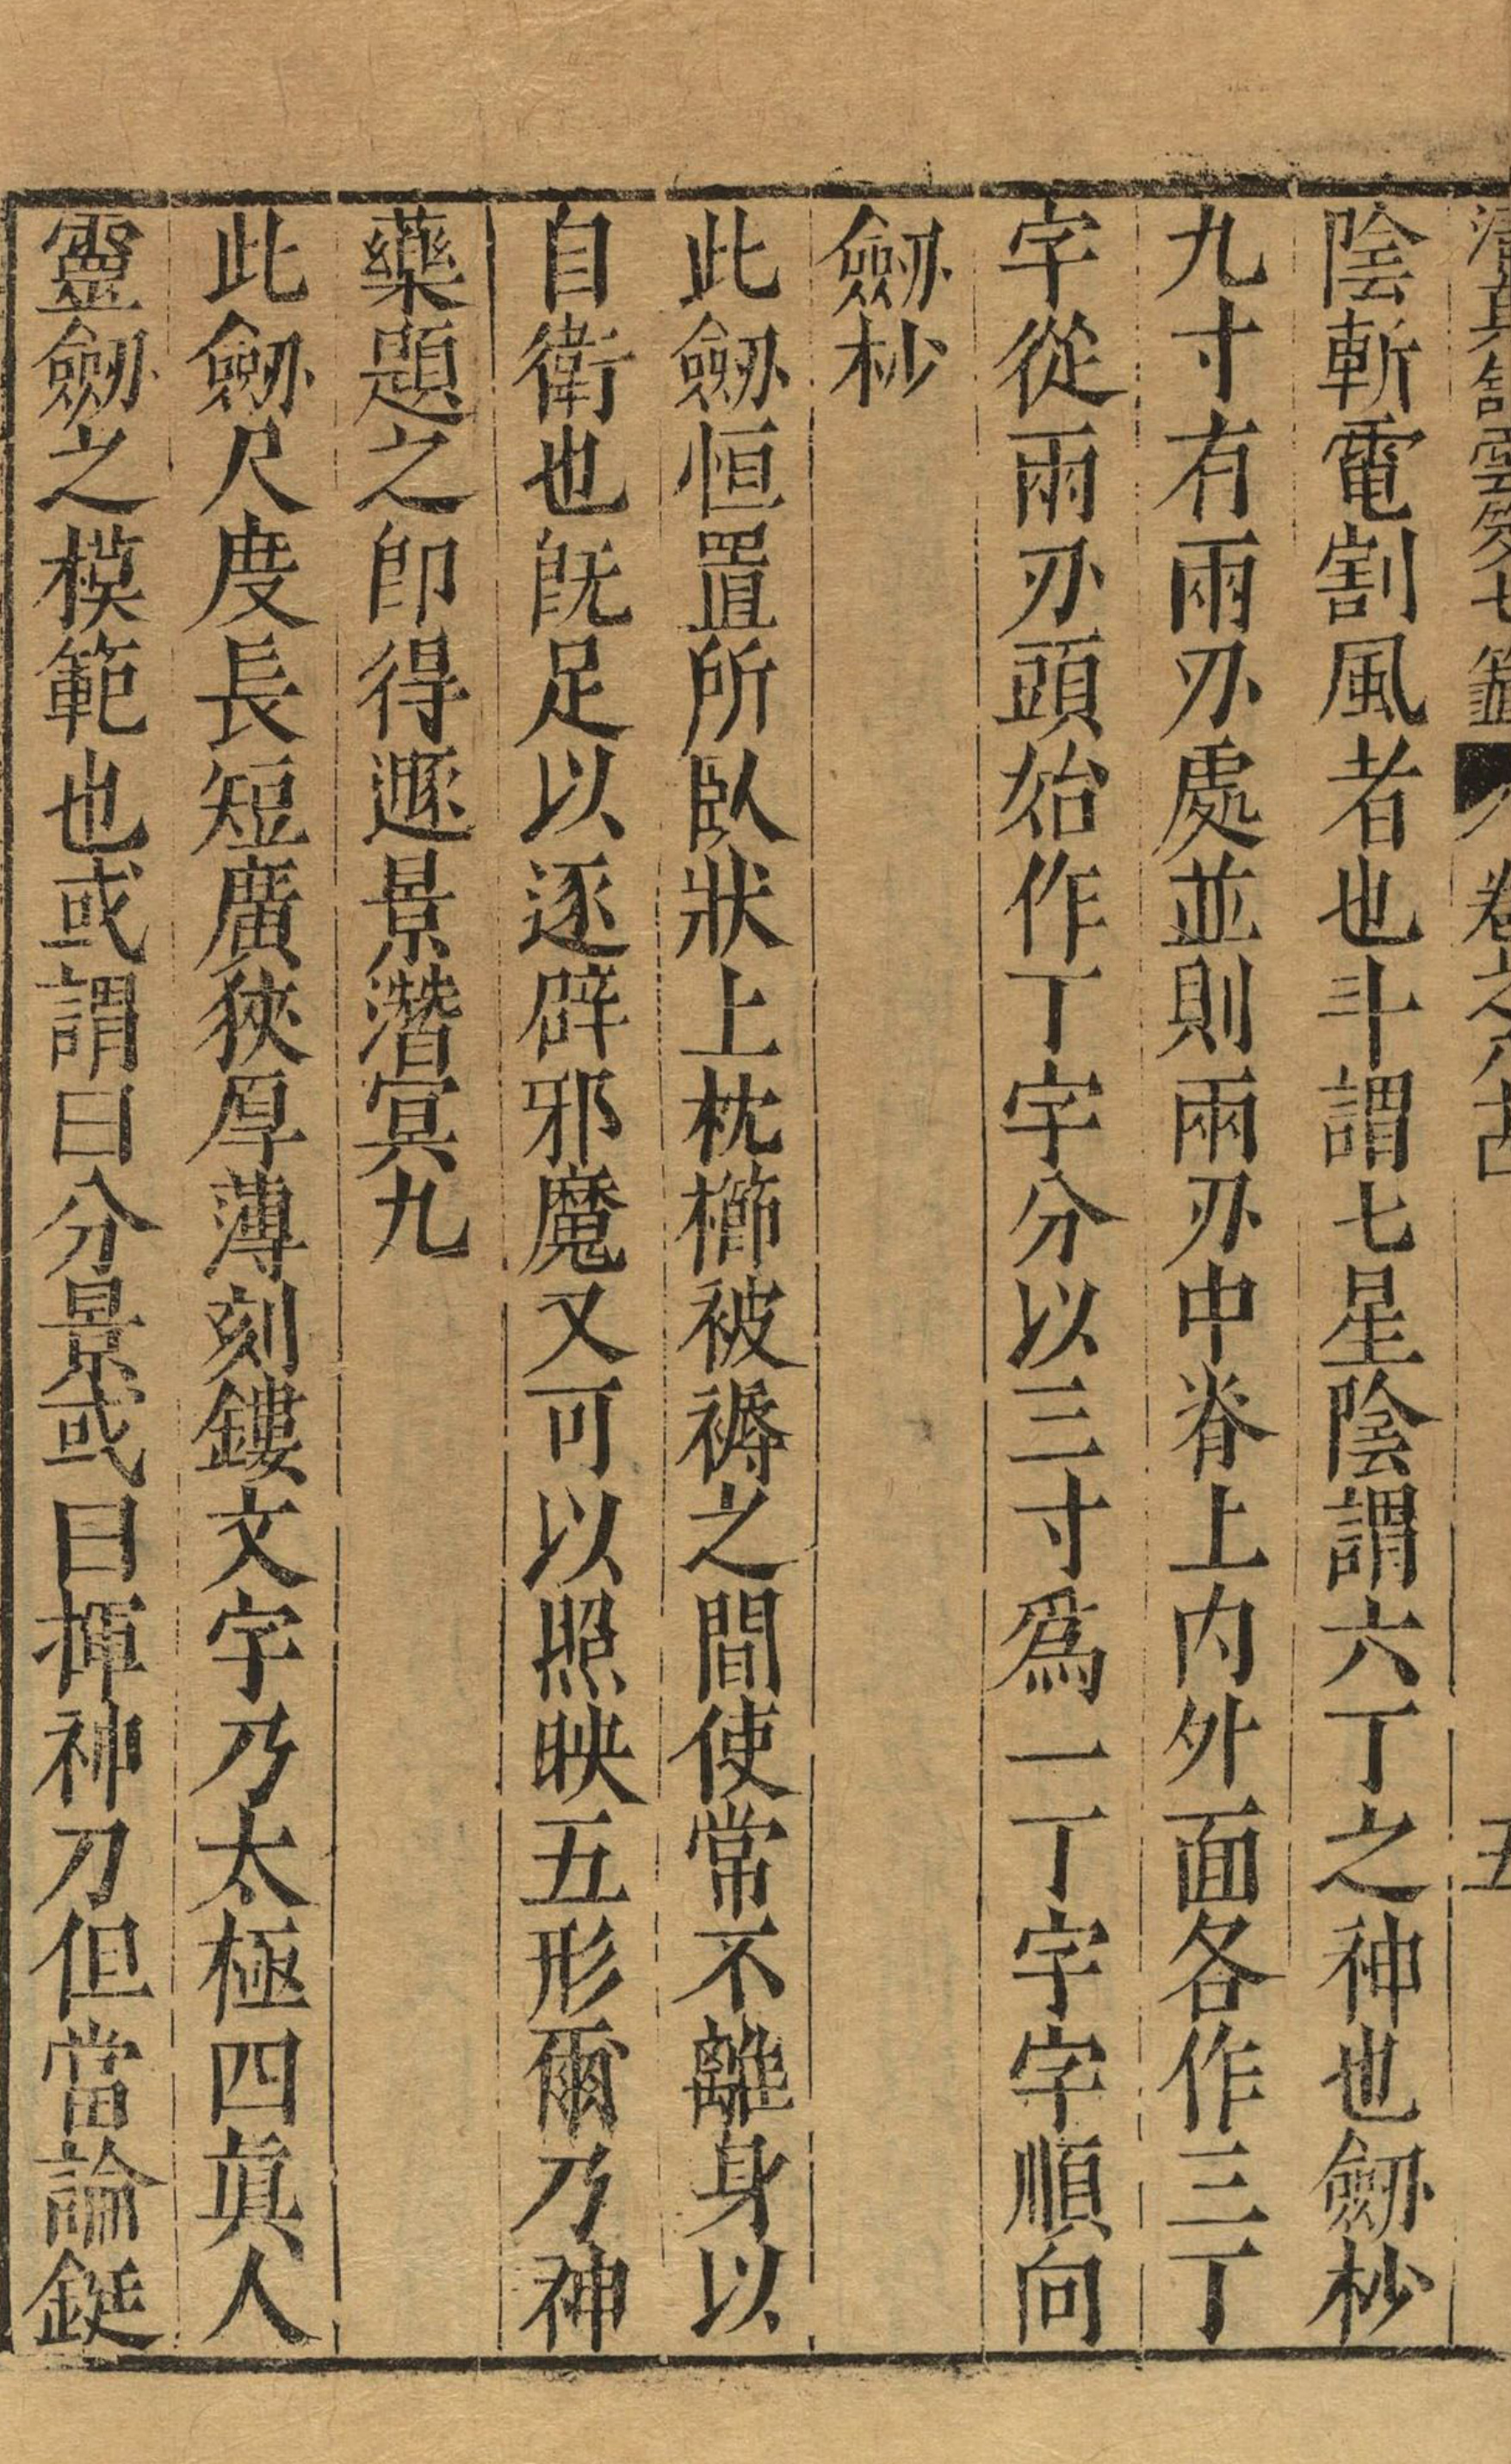 清真館雲笈七籤 卷之八十四 五
陰斬電割風者也斗謂七星陰謂六丁之神也劒杪
九寸有兩刃處並則兩刃中脊上内外面各作三丁
字從兩刃頭始作丁字分以三寸爲一丁字字順向
劒杪
此劒恒置所臥狀上枕櫛被褥之間使常不離身以
自衛也旣足以逐辟邪魔又可以照映五形爾乃神
藥題之卽得遯景潛冥九
此劒尺度長短廣狹厚薄刻鏤文字乃太極四眞人
靈劒之模範也或謂曰分景或曰揮神刀但當論鋌